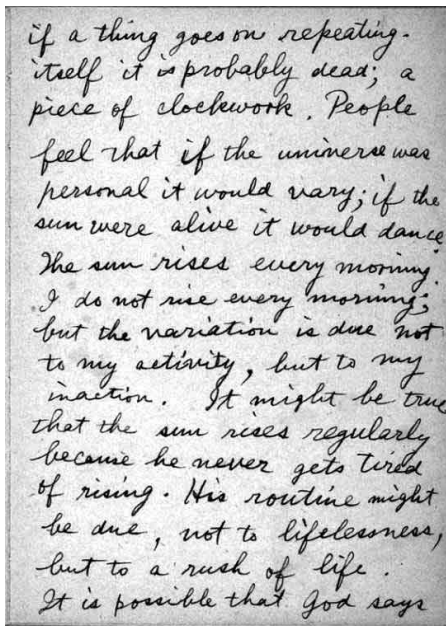 if a thing goes on repeating
itself it is probably dead; a
piece of clockwork. People
feel that if the universe was
personal it would vary; if the
sun were alive it would dance.
The sun rises every morning.
I do not rise every morning;
but the variation is due not
to my activity, but to my
inaction. It might be true
that the sun rises regularly
because he never gets tired
of rising. His routine might
be due, not to lifelessness,
but to a rush of life.
It is possible that God says